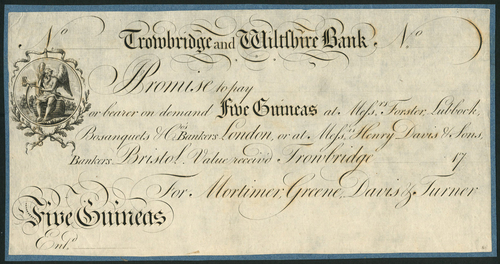 No Trowbridge and Wiltshire Bank. No
I Promise to pay
or bearer on demand Five Guineas at Messrs. Forster, Lubbock,
Bosanquets & Co. Bankers London, or at Messrs. Henry Davis & Sons,
Bankers Bristol. Value received Trowbridge 17
For Mortimer, Greene, Davis & Turner
Five Guineas
Entd.